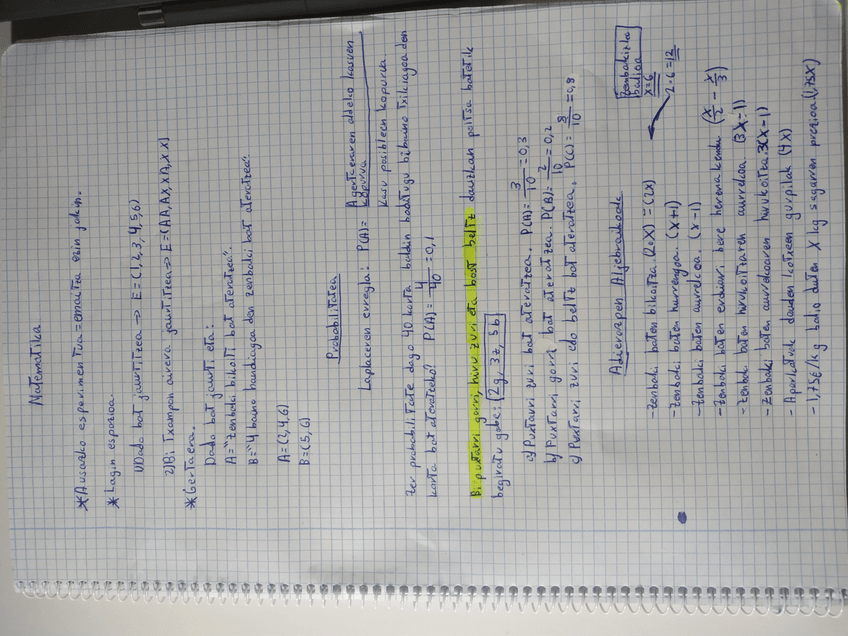 Matematika
*Ausazko esperimentua=emaitza ezin jakin.
*Lagin espazioa.
1)Dado bat jaurtitzea → E=(1,2,3,4,5,6)
2)Bi txanpon airera jaurtitzea → E=(AA,AX,XA,XX)
*Gertaera.
Dado bat jaurti eta:
A="zenbaki bikoiti bat ateratzea".
B="4 baino handiagoa den zenbaki bat ateratzea".
A=(2,4,6)
B=(5,6)
Probabilitatea
Laplaceren erregla: P(A)= Agertaeraren aldeko kasuen kopurua
kasu posibleen kopurua.
Zer probabilitate dago 40 karta baldin baditugu bi baino txikiagoa den
karta bat ateratzeko? P(A)= 4/40 =0,1
Bi puxtarri gorri, hiru zuri eta bost beltz dauzkan poltsa batetik
begiratu gabe: 2g, 3z, 5b
a) Puxtarri zuri bat ateratzea. P(A)= 3/10 =0,3
b) Puxtarri gorri bat ateratzea. P(B)= 2/10 =0,2
c) Puxtarri zuri edo beltz bat ateratzea. P(C)= 8/10 =0,8
Adierazpen Aljebraikoak
Zenbakizko
balioa
x=6
2·6=12
-Zenbaki baten bikoitza (2·x)=(2x)
-Zenbaki baten hurrengoa. (x+1)
-Zenbaki baten aurrekoa. (x-1)
-Zenbaki baten erdiari bere herena kendu (x/2 - x/3)
-Zenbaki baten hirukoitzaren aurrekoa (3x-1)
-Zenbaki baten aurrekoaren hirukoitza. 3(x-1)
-Aparkatuak dauden kotxeen gurpilak (4x)
-1,75€/kg balio duten x kg sagarren prezioa (1,75x)